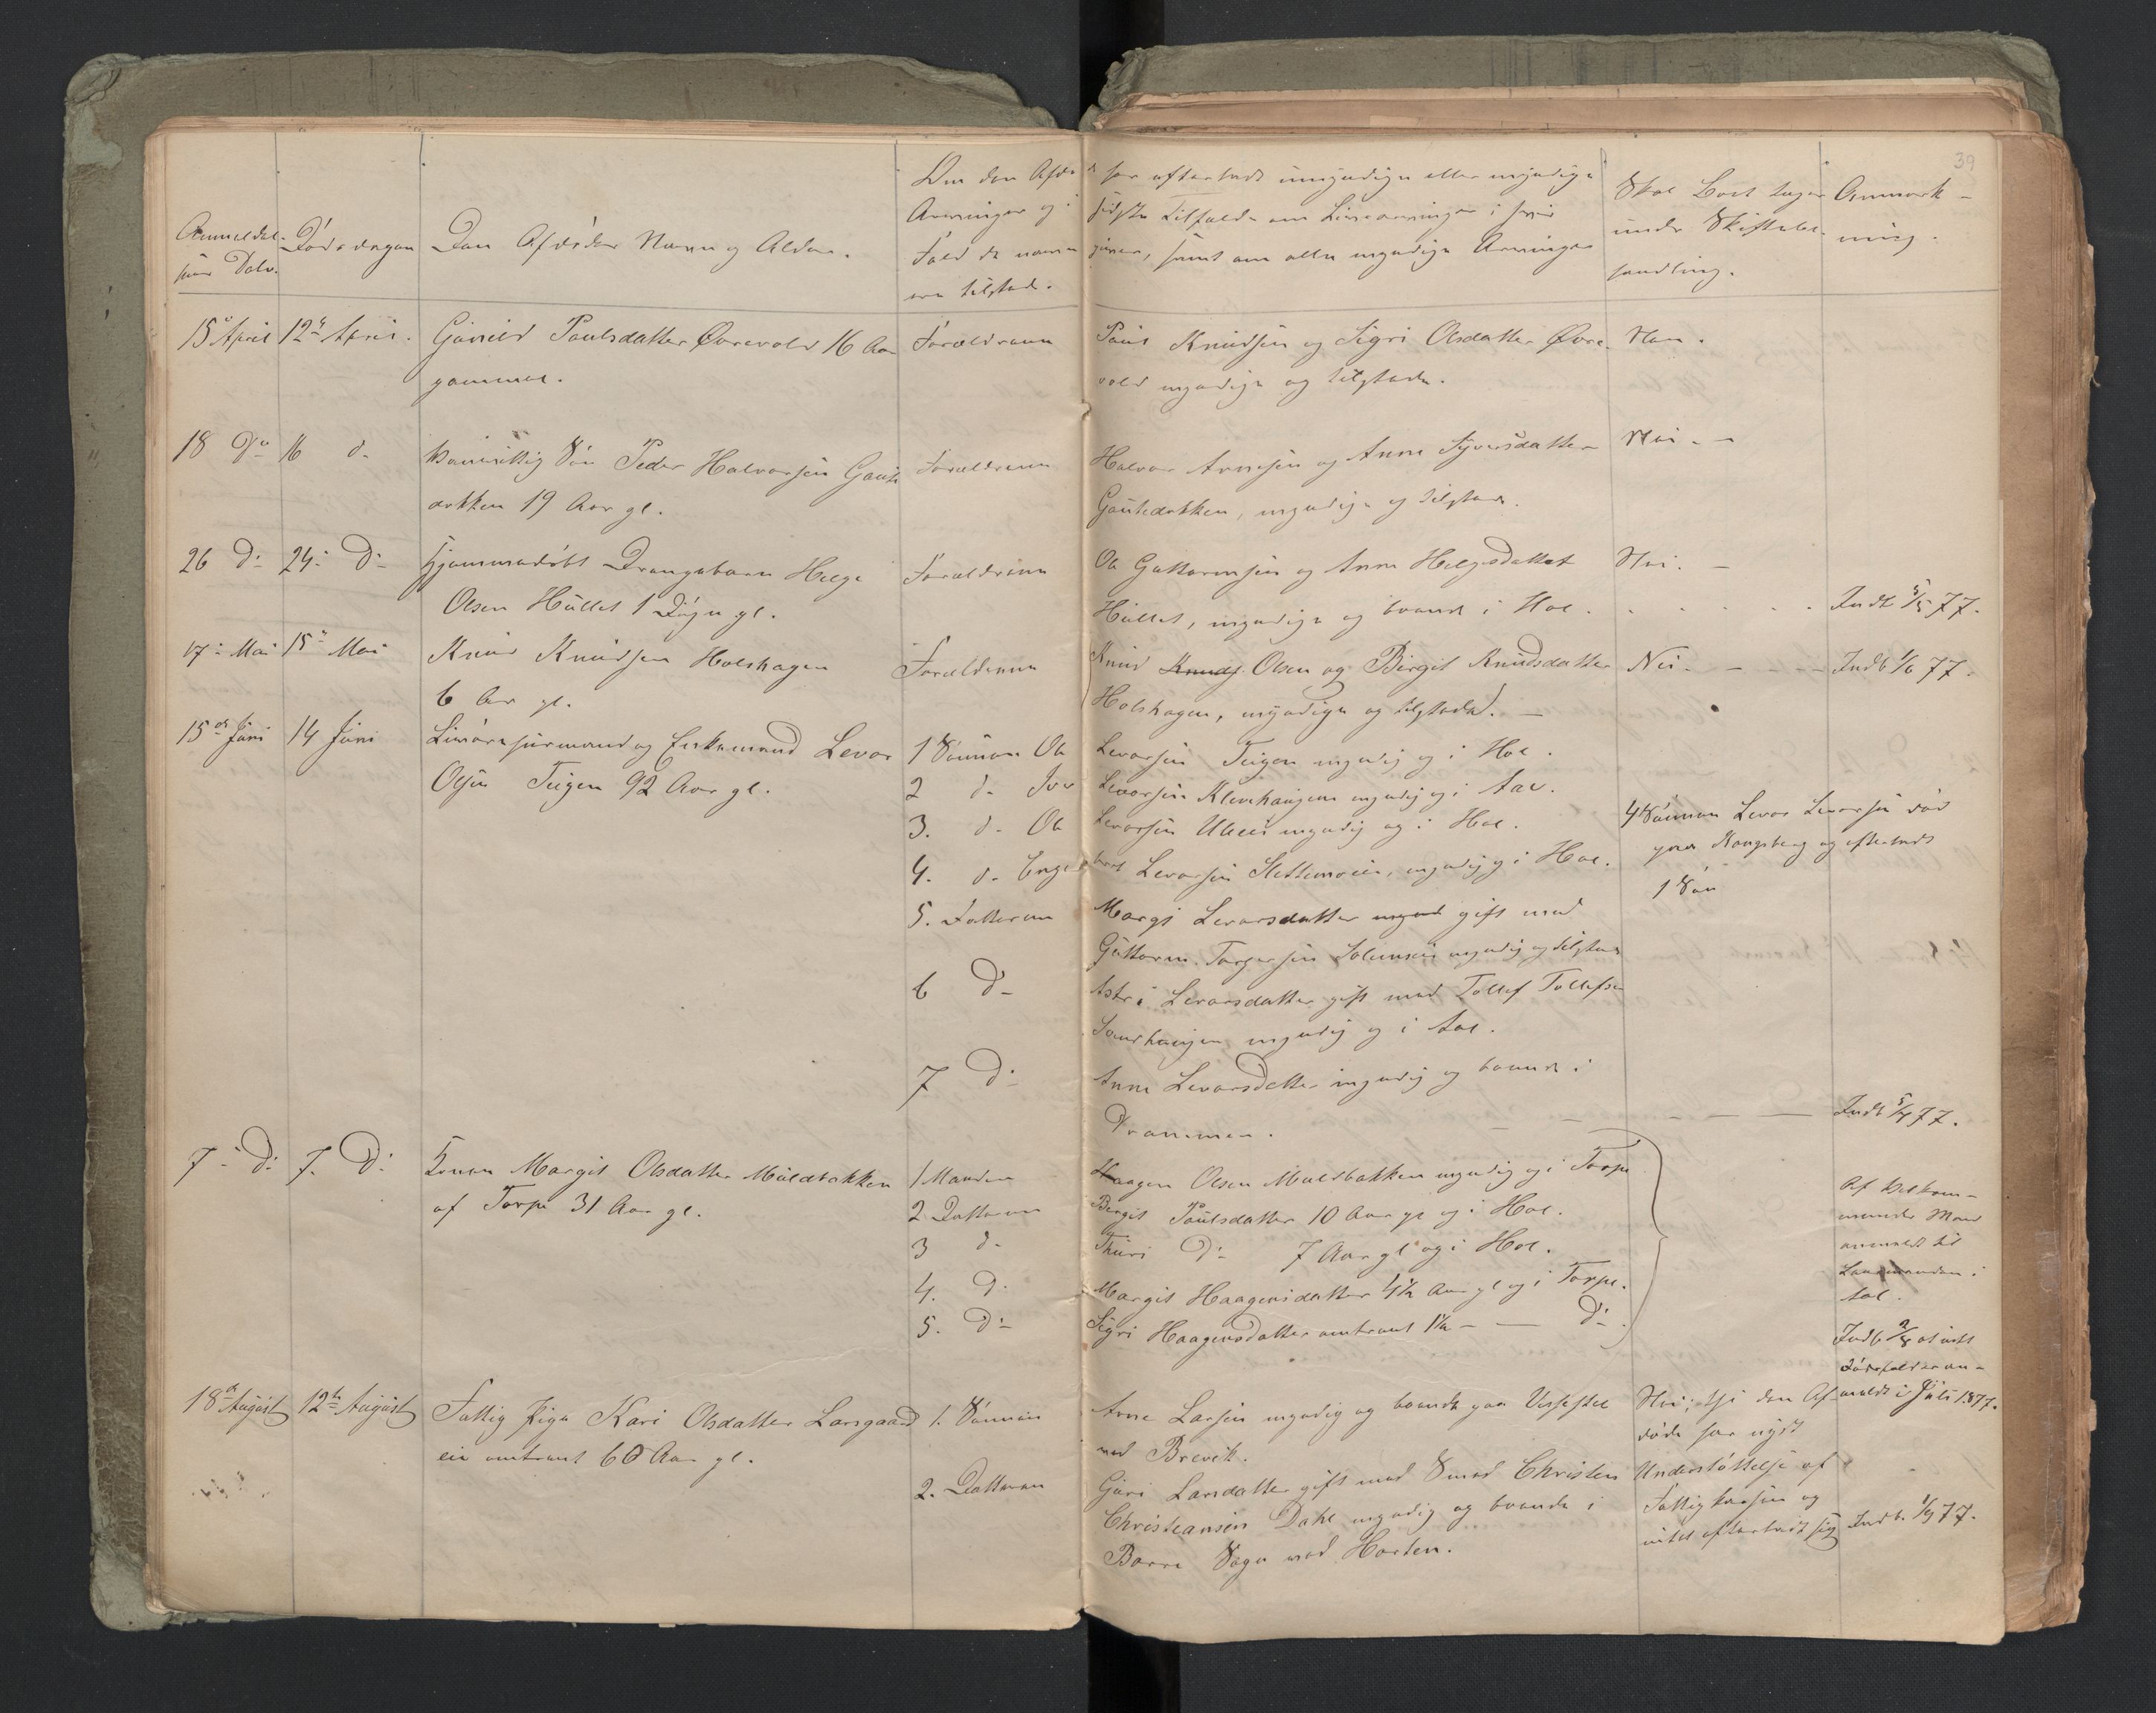 39
Anmeldel-
sens Dato.
Dødsdagen
Den Afdødes Navn og Alder.
Om den Afdøde har efterladt umyndige eller myndige
Arvinger og i sidste Tilfælde om Livsarvinger i
Fald de myndige ere samt om alle myndige Arvinger
ere tilstede.
Skal Boet tages
under Skiftebe-
handling.
Anmærk-
ning.
15de April 12te April. Gunild Paulsdatter Øvrevold 16 Aar Forældrene Paul Knudsen og Sigri Olsdatter Øvre- Nei.
gammel. vold myndige og tilstede.
18 Do 16 d. Vanvittig Søn Peder Halvorsen Gaute Forældrene Halvor Arnesen og Anne Syversdatter Nei. -
dokken 19 Aar gl. Gautedokken, myndige og tilstede.
26 Do 24 Do Hjemmedøbt Drengebarn Helge Forældrene Ole Guttormsen og Anne Helgesdatter Nei. -
Olsen Hullet 1 Døgn gl. Hullet, myndige og boende i Hol. Indb 5/5 77.
17de Mai 15de Mai Knud Knudsen Holshagen Forældrene Knud Knuds. Olsen og Birgit Knudsdatter Nei. - Indb 1/6 77.
6 Aar gl. Holshagen, myndige og tilstede. -
15de Juni 14 Juni Livøresjurmand og Enkemand Levor 1 Sønnen Ole Levorsen Teigen myndig og i Hol.
Olsen Teigen 92 Aar gl. 2 d. Iver Levorsen Klevehaugen myndig og i Aal.
3. d. Ole Levorsen Ulsli myndig og i Hol.
4. d. Engebret Levorsen Slettemoen, myndig og i Hol.
4 Sønnen Levor Levorsen død
paa Kongsberg og efterladt
1 Søn
5. Datteren Margi Levorsdatter myndi gift med
Guttorm Torgersen myndig og tilstede
6 Do Astri Levorsdatter gift med Tollef Tollefsen
myndig og i Aal.
7 Do Anne Levorsdatter myndig og boende i
Drammen. - - - Indb 5/7 77.
7de Do 7. Do Konen Margit Olsdatter Muldbakken 1 Manden Haagen Olsen Muldbakken myndig og i Torpe
af Torpe 31 Aar gl. 2 Datteren Bergit Paulsdatter 10 Aar gl og i Hol.
3 d. Thuri Do 7 Aar gl og i Hol.
4. D. Margit Haagensdatter 4½ Aar gl og i Torpe.
5. Do Sigri Haagensdatter omtrent 1½ - - Do
Af Vedkom-
mende Mand
anmeldt til
Lensmanden i
Aal.
Indb 2/8 at intet
Dødsfald er an-
meldt i Juli 1877.
18de August 12te August Fattig Pige Kari Olsdatter Larsgaard 1. Sønnen Arne Larsen myndig og boende paa
eie omtrent 60 Aar gl. ved Brevik.
2. Datteren Guri Larsdatter gift med Smed Christen
Christiansen Dahl myndig og boende i
Borre Sogn ved Horten.
Nei; thi den Af-
døde har nydt
Understøttelse af
Fattigkassen og
intet efterladt sig Indb. 1/9 77.